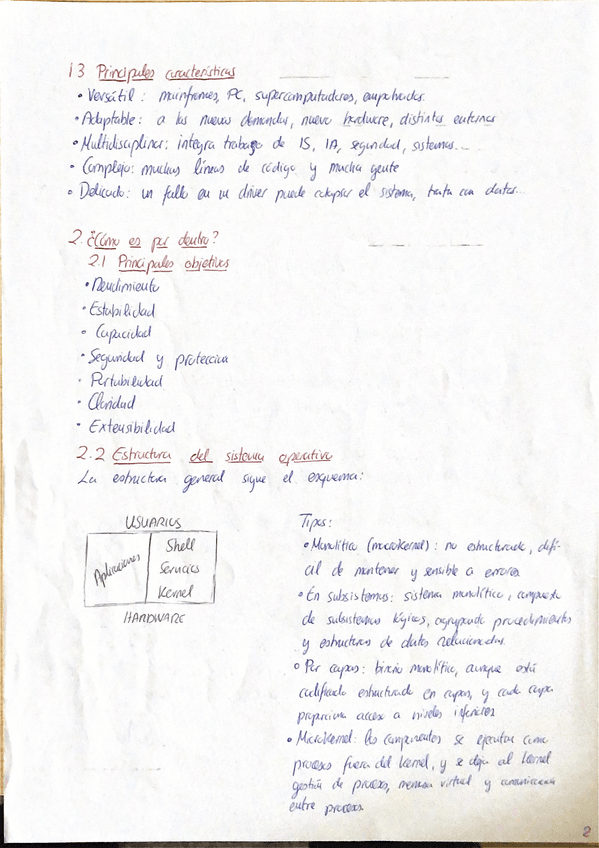 1.3 Principales características
• Versátil: mainframes, PC, supercomputadores, empotrados.
• Adaptable: a las nuevas demandas, nuevo hardware, distintos entornos
• Multidisciplinar: integra trabajo de IS, IA, seguridad, sistemas...
• Complejo: muchas líneas de código y mucha gente
• Delicado: un fallo en un driver puede colapsar el sistema, trata con datos...
2. ¿Cómo es por dentro?
2.1 Principales objetivos
• Rendimiento
• Estabilidad
• Capacidad
• Seguridad y protección
• Portabilidad
• Claridad
• Extensibilidad
2.2 Estructura del sistema operativo
La estructura general sigue el esquema:
USUARIOS
Aplicaciones
Shell
Servicios
Kernel
HARDWARE
Tipos:
• Monolítico (macrokernel): no estructurado, difí-
cil de mantener y sensible a errores
• En subsistemas: sistema monolítico, compuesto
de subsistemas lógicos, agrupando procedimientos
y estructuras de datos relacionadas.
• Por capas: binario monolítico, aunque está
codificado estructurado en capas, y cada capa
proporciona acceso a niveles inferiores
• Microkernel: los componentes se ejecutan como
procesos fuera del kernel, y se deja al kernel
gestión de procesos, memoria virtual y comunicación
entre procesos
2